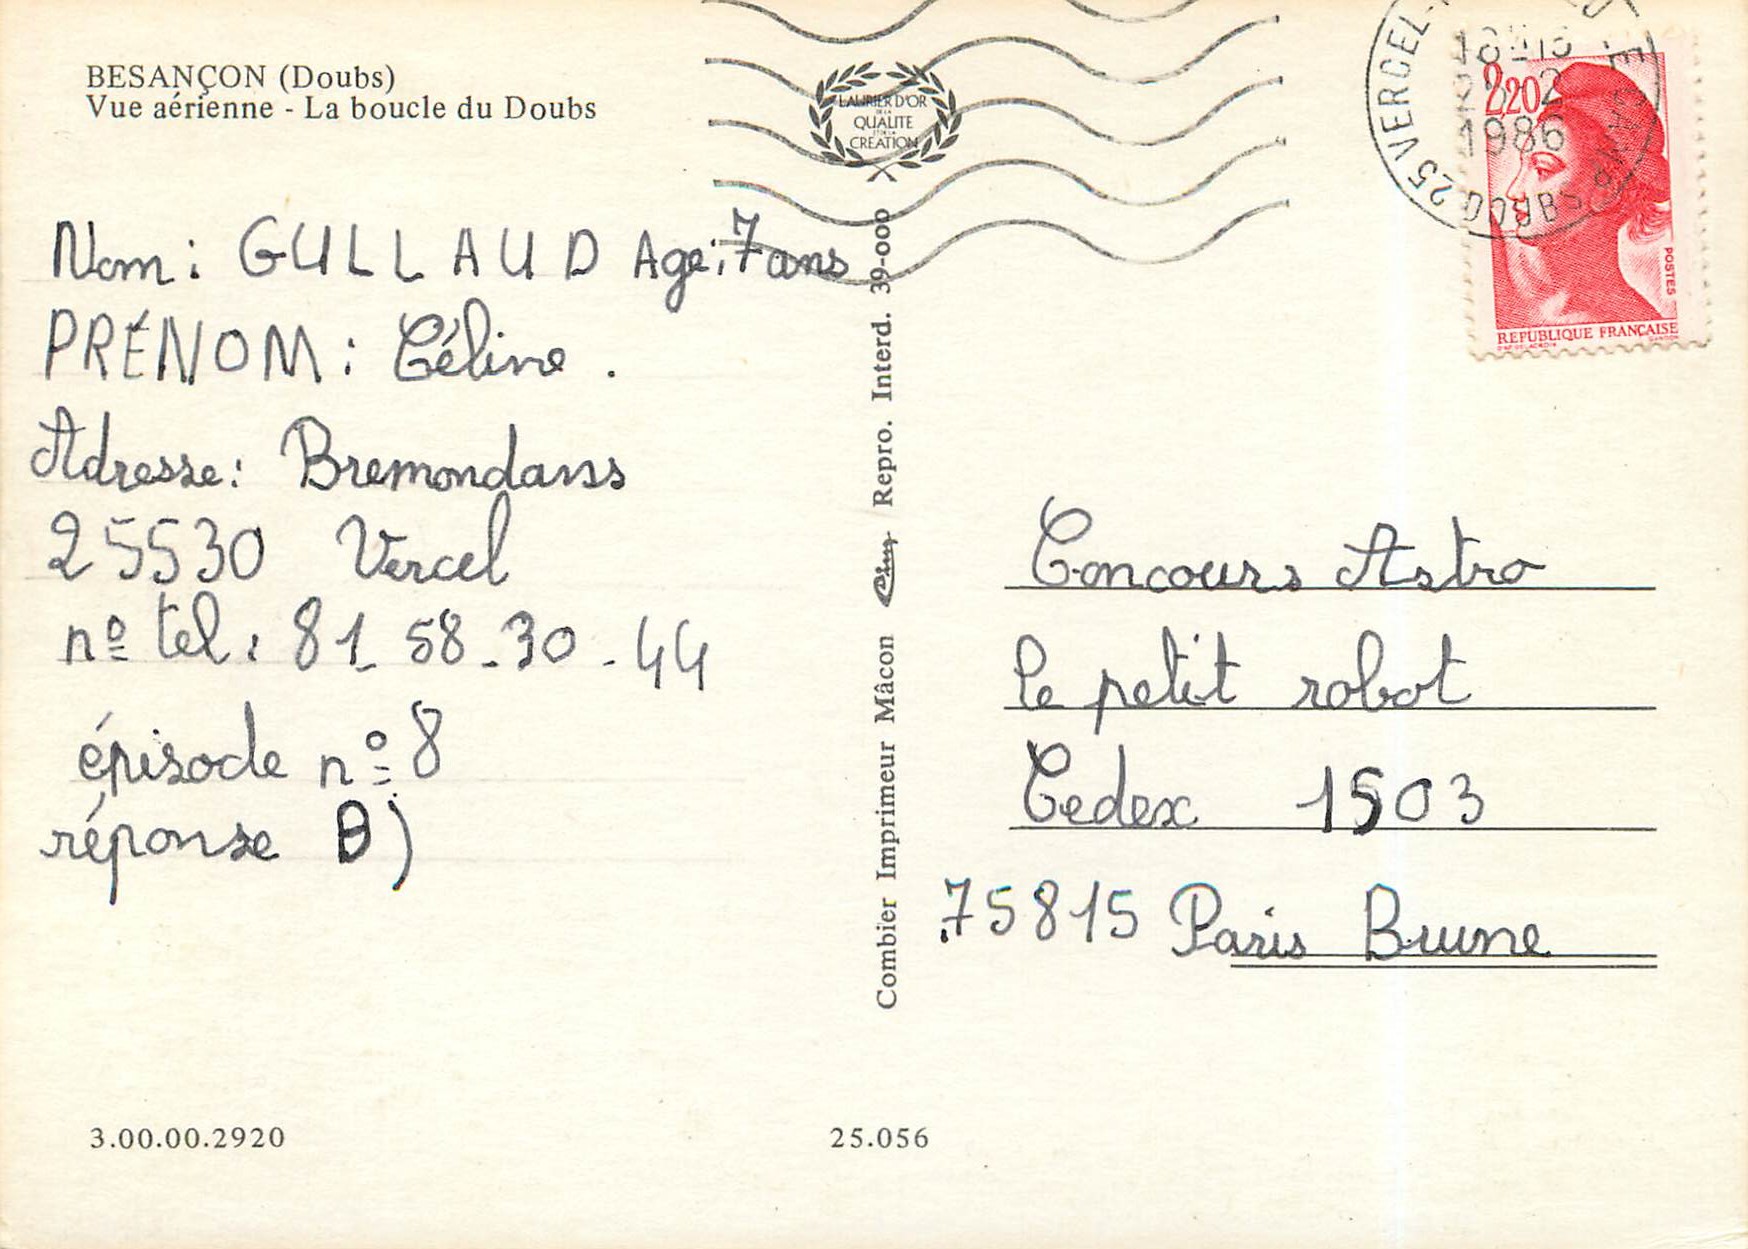 BESANÇON (Doubs)
Vue aérienne - La boucle du Doubs
LAURIER D'OR
DE LA
QUALITE
ET DE LA
CREATION
25 VERCEL-
DOUBS
1986
2,20
POSTES
REPUBLIQUE FRANÇAISE
Nom: GULLAUD Age: 7 ans
PRÉNOM: Céline.
Adresse: Bremondans
25530 Vercel
nº tel: 81_58_30_44
épisode nº 8
réponse B)
Combier Imprimeur Mâcon Cim Repro. Interd. 39-000
Concours Astro
le petit robot
Cedex 1503
75815 Paris Brune
3.00.00.2920
25.056